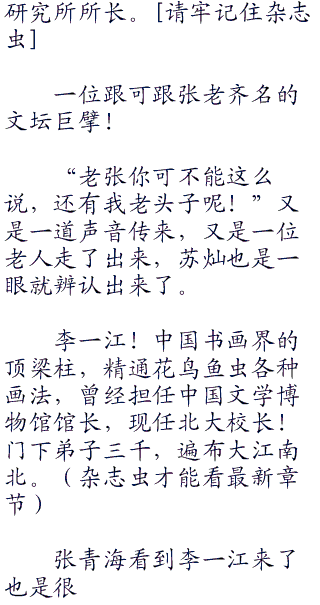 研究所所长。[请牢记住杂志
虫]
一位跟可跟张老齐名的
文坛巨擘！
“老张你可不能这么
说，还有我老头子呢！”又
是一道声音传来，又是一位
老人走了出来，苏灿也是一
眼就辨认出来了。
李一江！中国书画界的
顶梁柱，精通花鸟鱼虫各种
画法，曾经担任中国文学博
物馆馆长，现任北大校长！
门下弟子三千，遍布大江南
北。（杂志虫才能看最新章
节）
张青海看到李一江来了
也是很